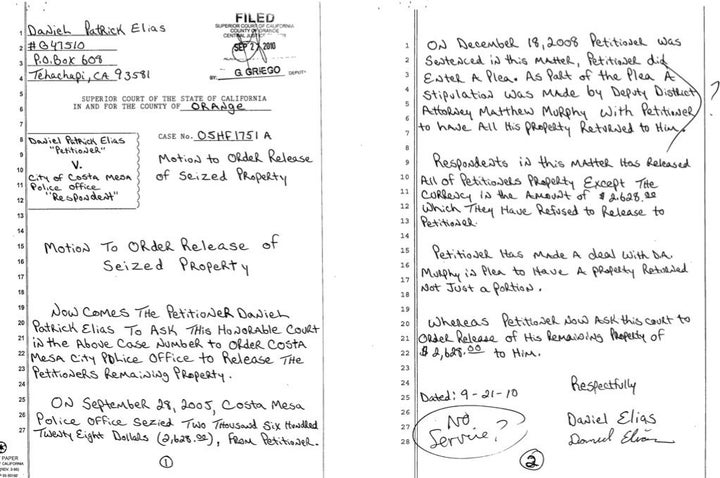 Daniel Patrick Elias
#G47510
P.O. Box 608
Tehachapi, CA 93581
FILED
SUPERIOR COURT OF CALIFORNIA
COUNTY OF ORANGE
CENTRAL JUSTICE
SEP 27 2010
BY: G. GRIEGO DEPUTY
SUPERIOR COURT OF THE STATE OF CALIFORNIA
IN AND FOR THE COUNTY OF ORANGE
Daniel Patrick Elias
"Petitioner"
V.
City of Costa Mesa
Police Office
"Respondent"
CASE NO. 05HF1751 A
Motion to Order Release
of Seized Property
Motion To Order Release of
Seized Property
Now Comes The Petitioner Daniel
Patrick Elias To Ask This Honorable Court
in the Above Case Number to Order Costa
Mesa City Police Office to Release The
Petitioners Remaining Property.
On September 28, 2005, Costa Mesa
Police Office Sezied Two Thousand Six Hundred
Twenty Eight Dollars (2,628.00), From Petitioner.
1
PAPER
OF CALIFORNIA
1
2
3
4
5
6
7
8
9
10
11
12
13
14
15
16
17
18
19
20
21
22
23
24
25
26
27
28
On December 18, 2008 Petitioner was
Sentenced in this Matter, Petitioner did
Enter A Plea. As Part of the Plea A
Stipulation was Made by Deputy District
Attorney Matthew Murphy With Petitioner
to have All His Property Returned to Him.
?
Respondents in this Matter Has Released
All of Petitioners Property Except The
Currency in the Amount of $2,628.00
Which They Have Refused to Release to
Petitioner.
Petitioner Has Made A deal With DA.
Murphy in Plea to Have A Property Returned
Not Just a Portion.
Whereas Petitioner Now Ask this court to
Order Release of His Remaining Property of
$2,628.00 to Him.
Respectfully
Dated: 9-21-10
Daniel Elias
Daniel Elias
No
Service?
2
1
2
3
4
5
6
7
8
9
10
11
12
13
14
15
16
17
18
19
20
21
22
23
24
25
26
27
28